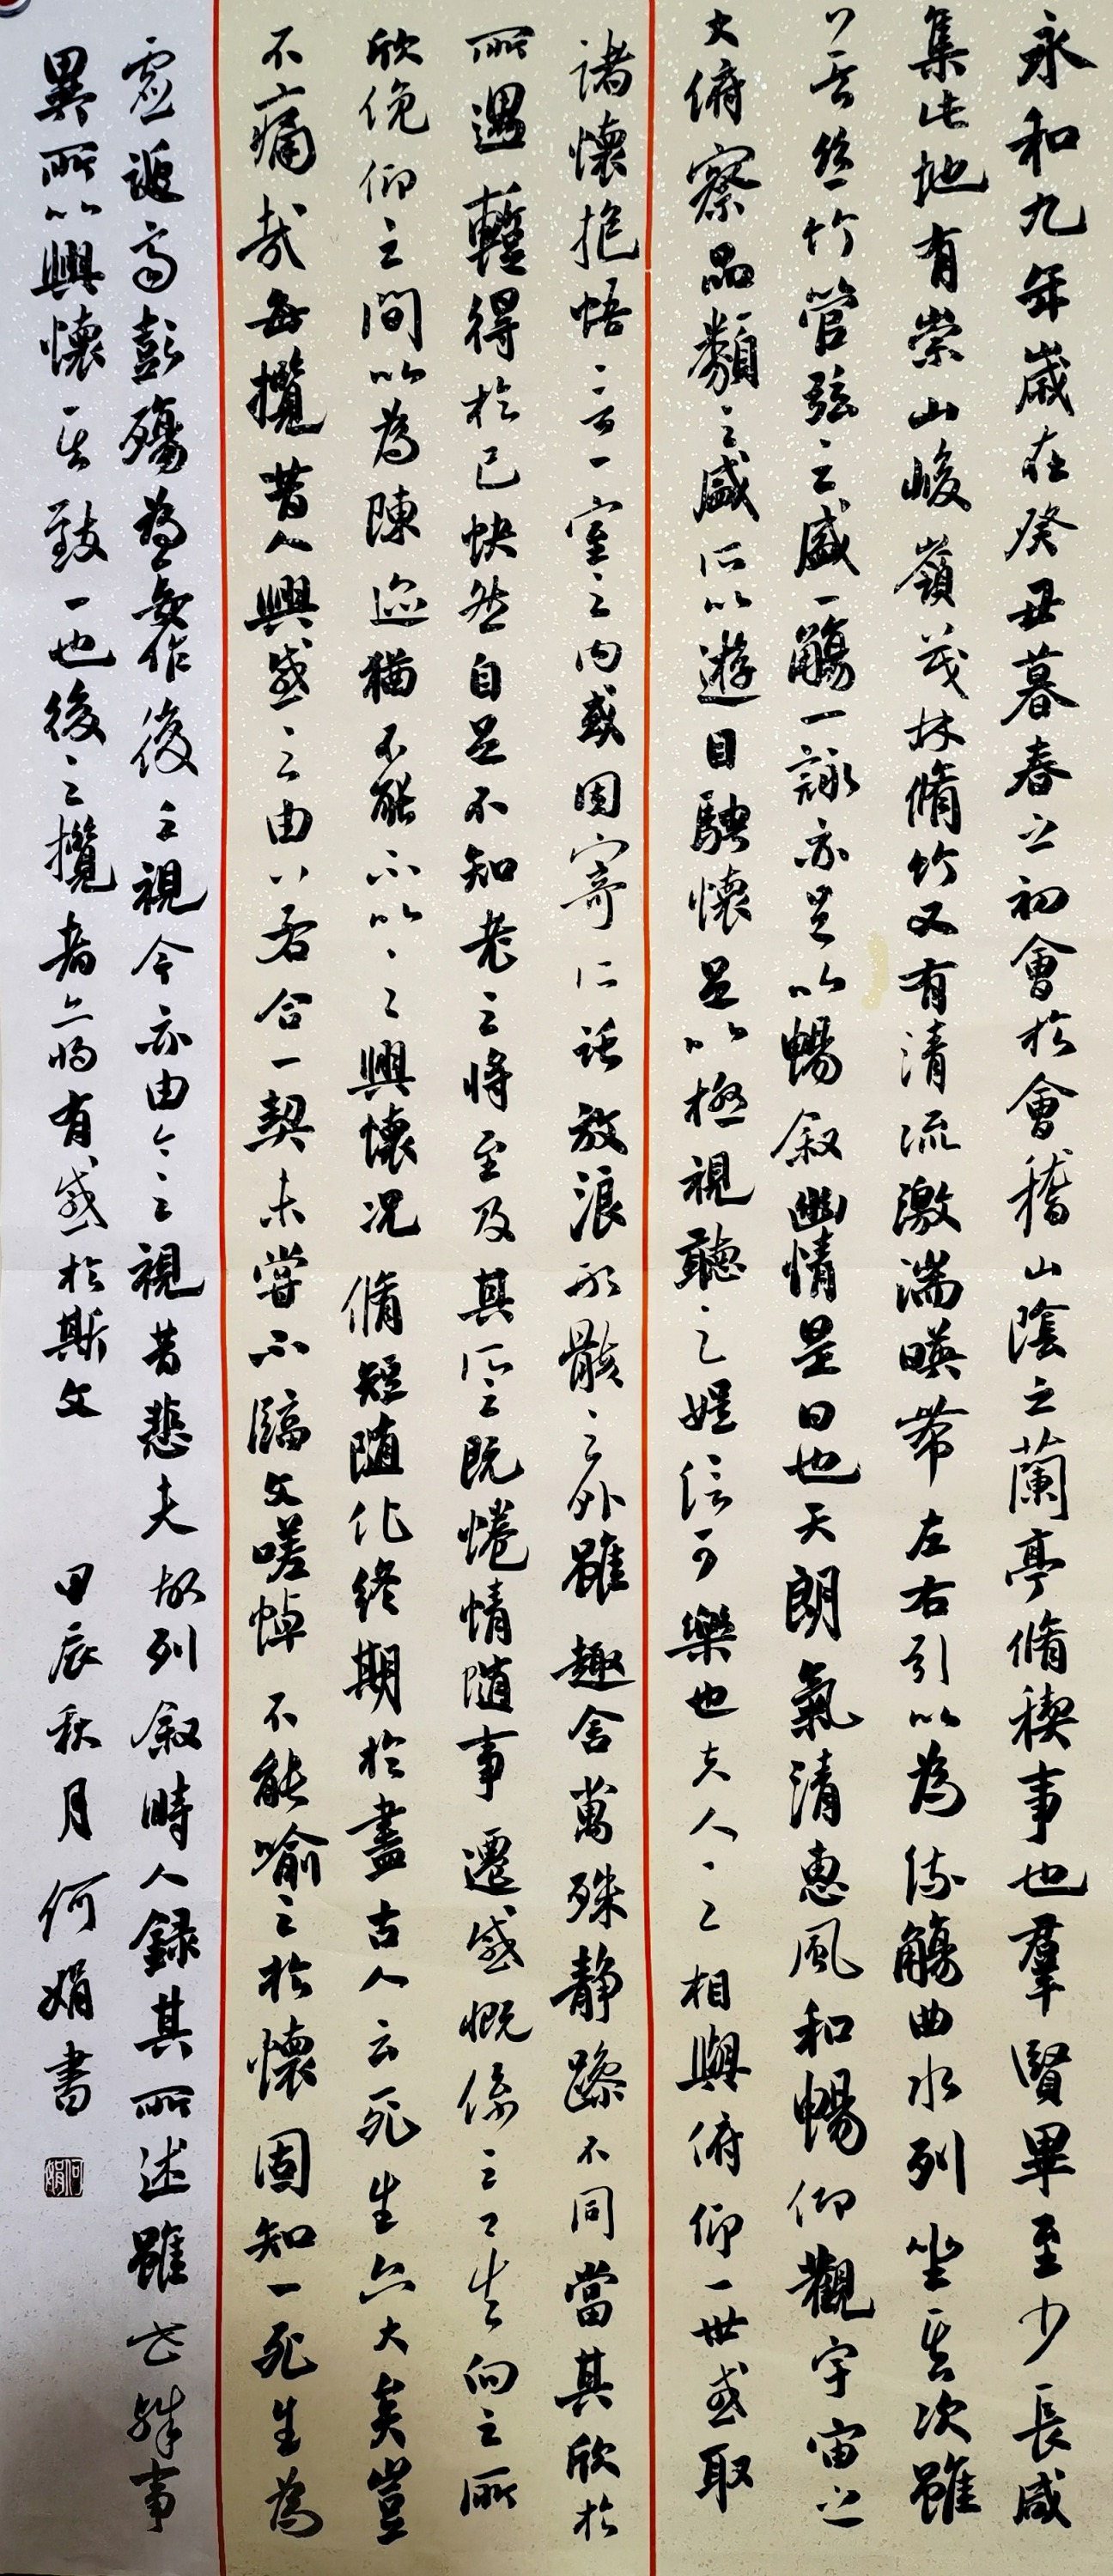 永和九年歲在癸丑暮春之初會於會稽山陰之蘭亭脩稧事也羣賢畢至少長咸
集此地有崇山峻嶺茂林脩竹又有清流激湍暎帶左右引以為流觴曲水列坐其次雖
無絲竹管弦之盛一觴一詠亦足以暢叙幽情是日也天朗氣清惠風和暢仰觀宇宙之
大俯察品類之盛所以遊目騁懷足以極視聽之娛信可樂也夫人之相與俯仰一世或取
諸懷抱悟言一室之内或因寄所託放浪形骸之外雖趣舍萬殊静躁不同當其欣於
所遇蹔得於己怏然自足不知老之將至及其所之既惓情隨事遷感慨係之矣向之所
欣俛仰之間以為陳迹猶不能不以之興懷況脩短隨化終期於盡古人云死生亦大矣豈
不痛哉每攬昔人興感之由若合一契未嘗不臨文嗟悼不能喻之於懷固知一死生為
虛誕齊彭殤為妄作後之視今亦由今之視昔悲夫故列叙時人錄其所述雖世殊事
異所以興懷其致一也後之攬者亦將有感於斯文 甲辰秋月何娟書
何娟